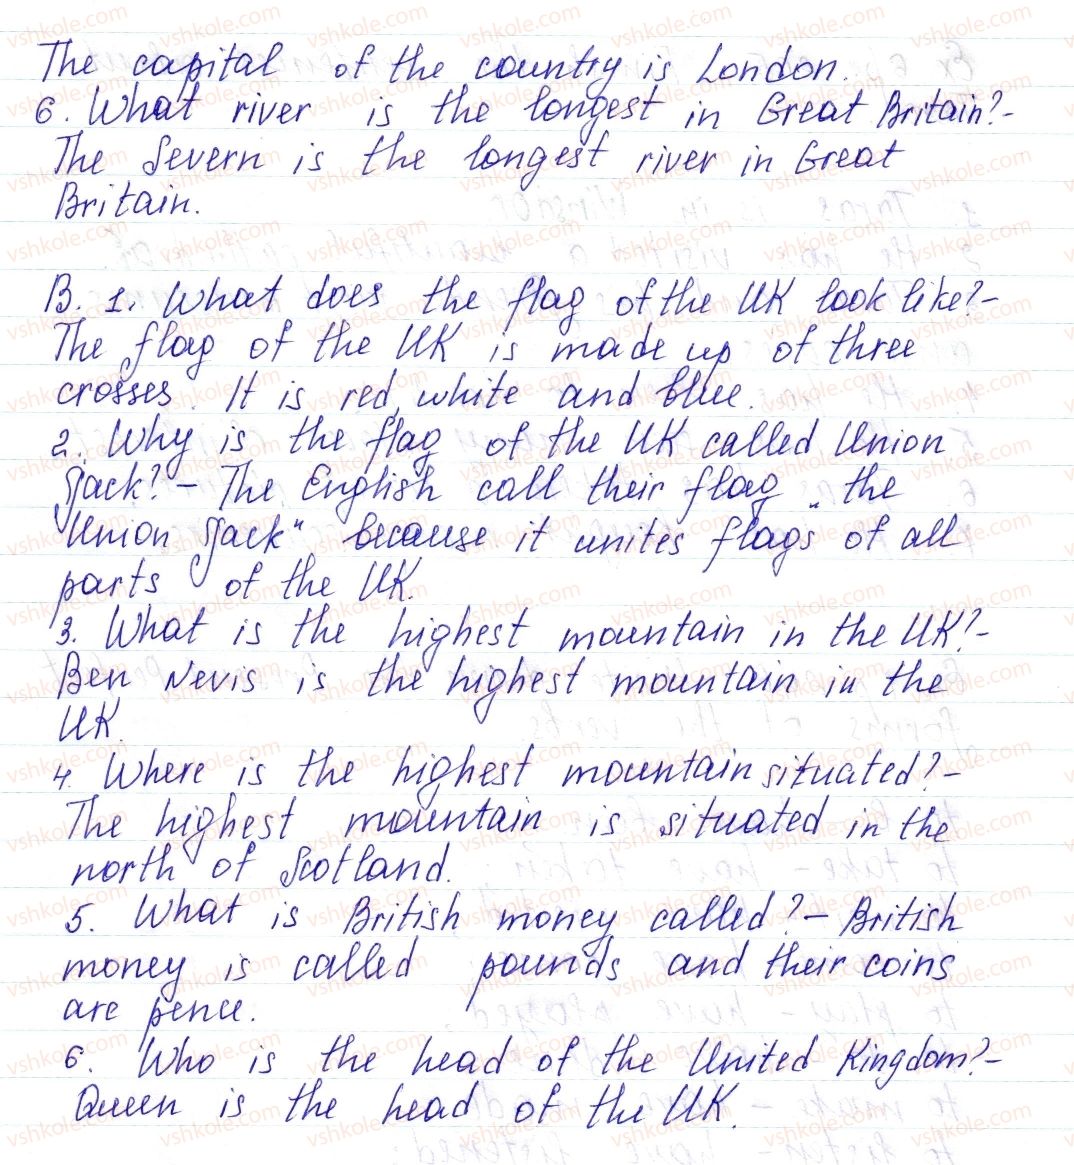 The capital of the country is London.
6. What river is the longest in Great Britain?-
The Severn is the longest river in Great
Britain.
B. 1. What does the flag of the UK look like?-
The flag of the UK is made up of three
crosses. It is red, white and blue.
2. Why is the flag of the UK called Union
Jack? - The English call their flag „the
Union Jack" because it unites flags of all
parts of the UK.
3. What is the highest mountain in the UK?-
Ben Nevis is the highest mountain in the
UK.
4. Where is the highest mountain situated?-
The highest mountain is situated in the
north of Scotland.
5. What is British money called? - British
money is called pounds and their coins
are pence.
6. Who is the head of the United Kingdom?-
Queen is the head of the UK.